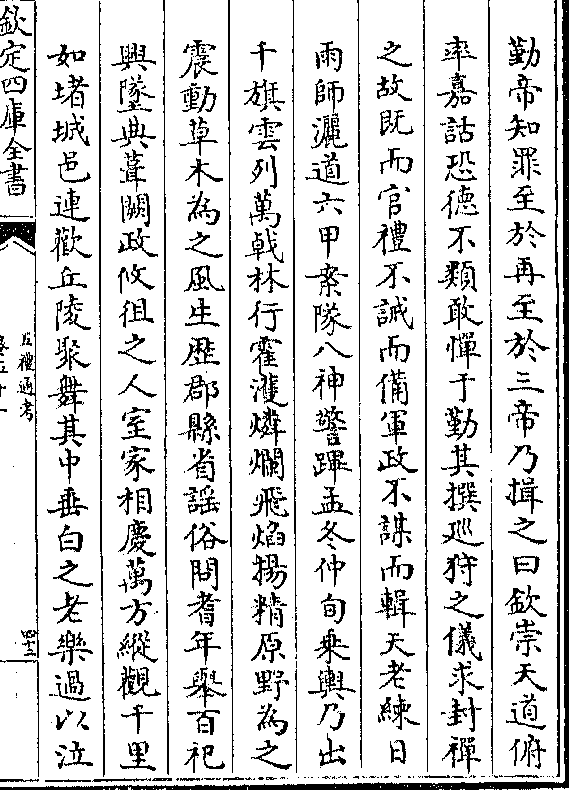 勤帝知罪至於再至於三帝乃揖之曰欽崇天道俯
率嘉話恐德不類敢憚于勤其撰巡狩之儀求封禪
之故既而官禮不誡而備軍政不謀而輯天老練日
雨師灑道六甲案隊八神警蹕孟冬仲旬乘輿乃出
千旗雲列萬戟林行霍濩燐爛飛焰揚精原野為之
震動草木為之風生歴郡縣省謡俗問耆年舉百祀
興墜典葺闕政攸徂之人室家相慶萬方縱觀千里
如堵城邑連歡丘陵聚舞其中垂白之老樂過以泣
欽定四庫全書